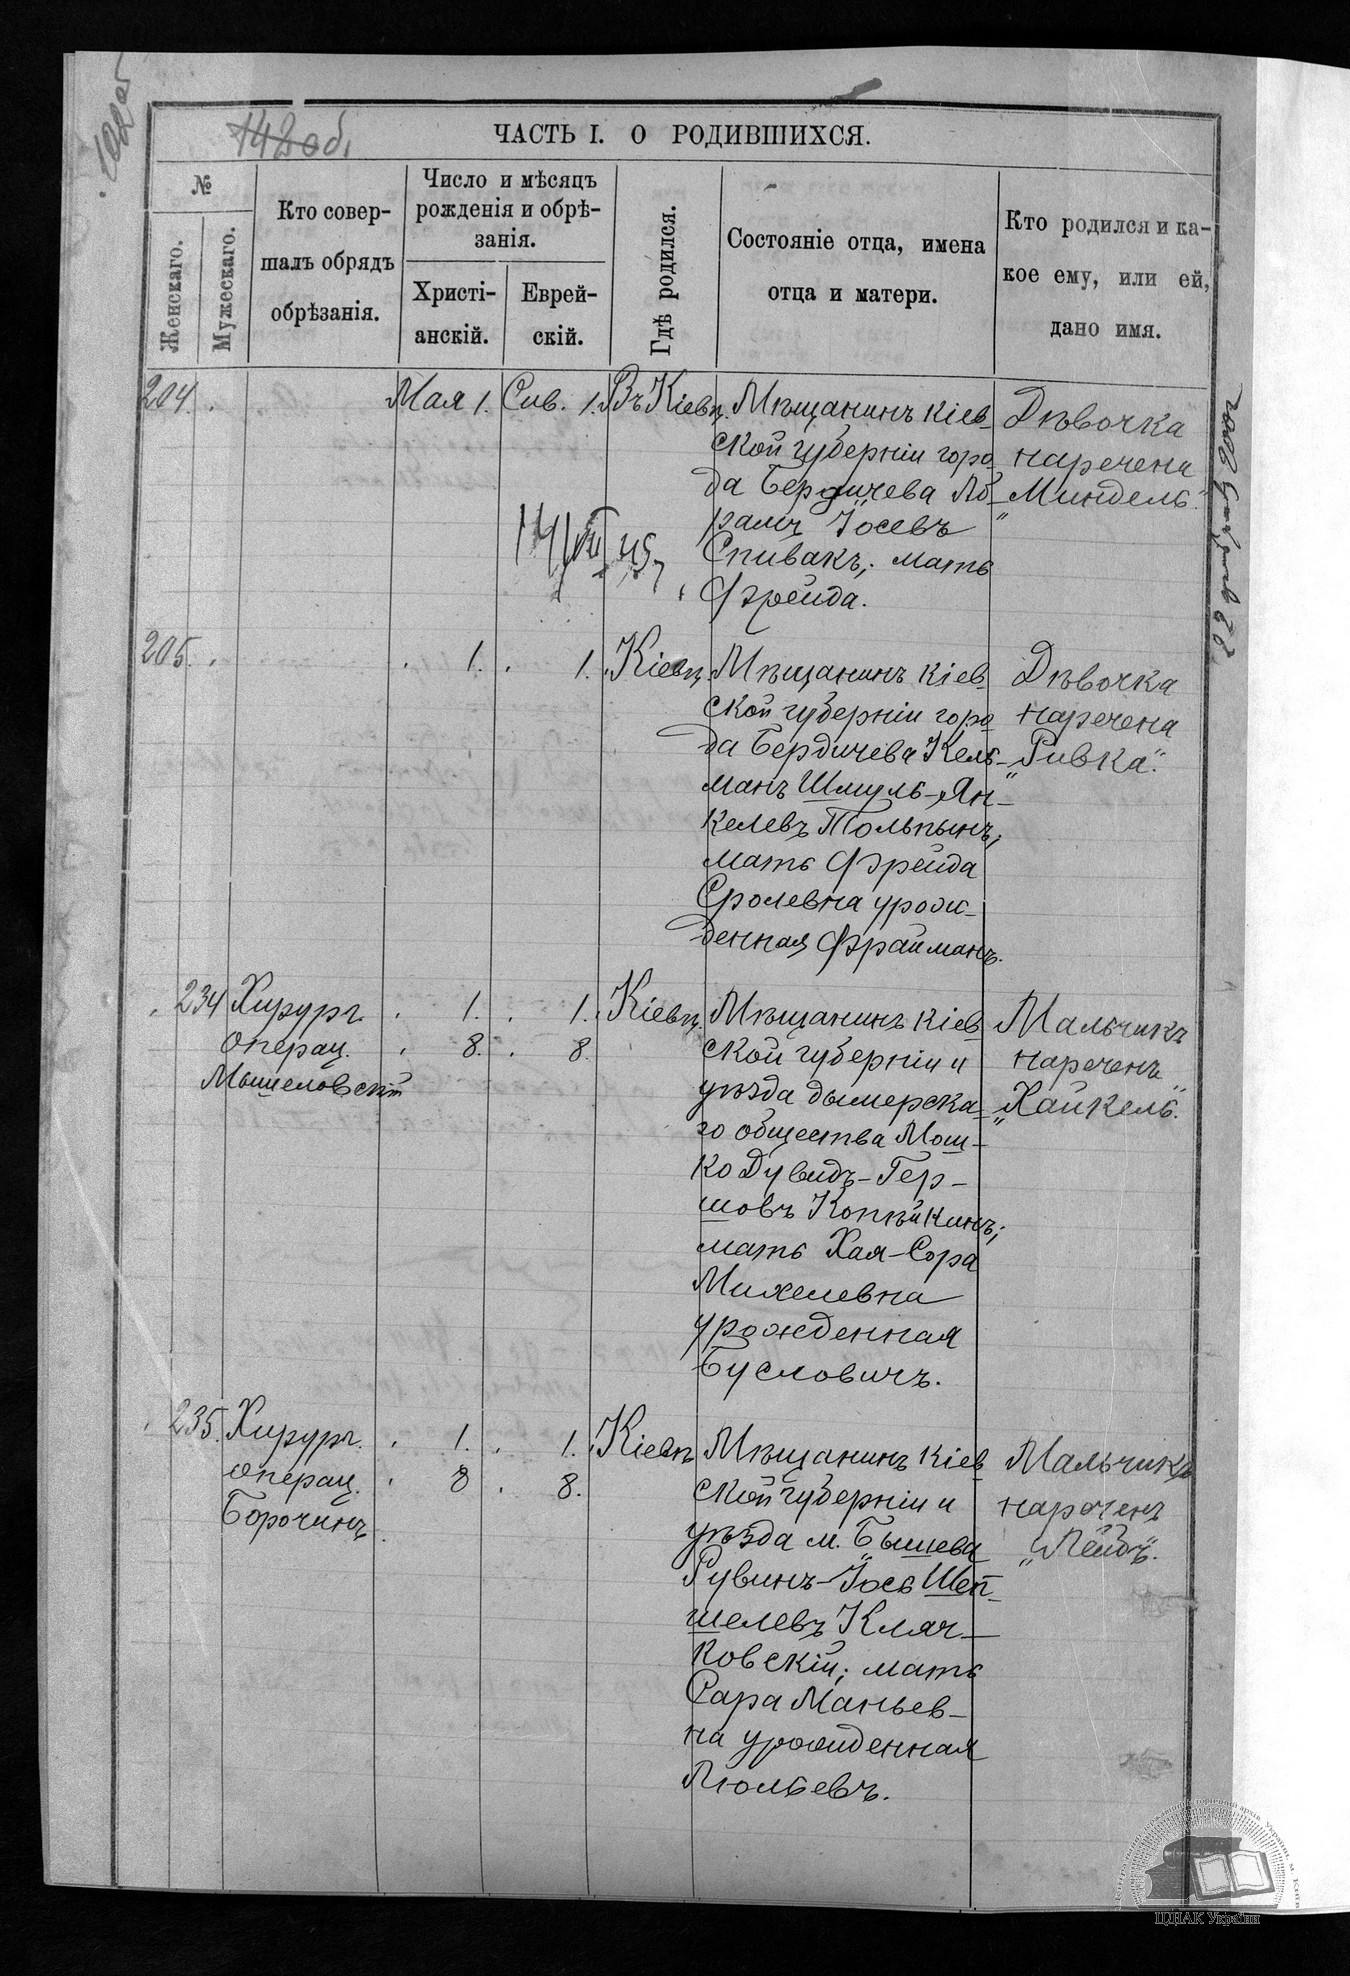 142об.
ЧАСТЬ I. О РОДИВШИХСЯ.
№
Женскаго.
Мужескаго.
Кто совер-
шалъ обрядъ
обрѣзанія.
Число и мѣсяцъ
рожденія и обрѣ-
занія.
Христі-
анскій.
Еврей-
скій.
Гдѣ родился.
Состояніе отца, имена
отца и матери.
Кто родился и ка-
кое ему, или ей,
дано имя.
204. Мая 1. Сив. 1. Въ Кіевѣ. Мѣщанинъ Кіев-
ской губерніи горо-
да Бердичева Аб-
рамъ Іосевъ
Спивакъ; мать
Фрейда.
Дѣвочка
наречена
„Миндель".
205. 1. 1. Кіевѣ. Мѣщанинъ Кіев-
ской губерніи горо-
да Бердичева Кель-
манъ Шмуль-Ян-
келевъ Тольпынъ;
мать Фрейда
Сролевна урож-
денная Фрайманъ.
Дѣвочка
наречена
„Ривка".
234 Хирург.
операц.
Мышеловскій
1. 1.
8. 8.
Кіевѣ. Мѣщанинъ Кіев-
ской губерніи и
уѣзда дымерска-
го общества Мош-
ко Дувидъ-Гер-
шовъ Копѣйкинъ;
мать Хая-Сора
Михелевна
урожденная
Бусловичъ.
Мальчикъ
нареченъ
„Хайкель".
235. Хирург.
операц.
Борочинъ
1. 1.
8. 8.
Кіевѣ Мѣщанинъ Кіев-
ской губерніи и
уѣзда м. Бышева
Рувинъ-Іось Шеп-
шелевъ Кляч-
ковскій; мать
Сара Маньев-
на урожденная
Люльевъ.
Мальчикъ
нареченъ
„Лейбъ".
ЦДІАК України